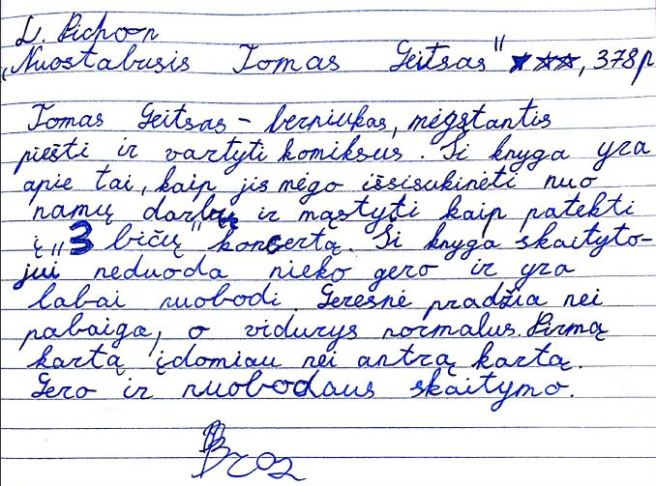 L. Pichon
„Nuostabusis Tomas Geitsas" ★★★, 378p
Tomas Geitsas – berniukas, mėgstantis
piešti ir vartyti komiksus. Ši knyga yra
apie tai, kaip jis mėgo išsisukinėti nuo
namų darbų ir mąstyti kaip patekti
į „3 bičų" koncertą. Ši knyga skaityto-
jui neduoda nieko gero ir yra
labai nuobodi. Geresnė pradžia nei
pabaiga, o vidurys normalus. Pirmą
kartą įdomiau nei antrą kartą.
Gero ir nuobodaus skaitymo.